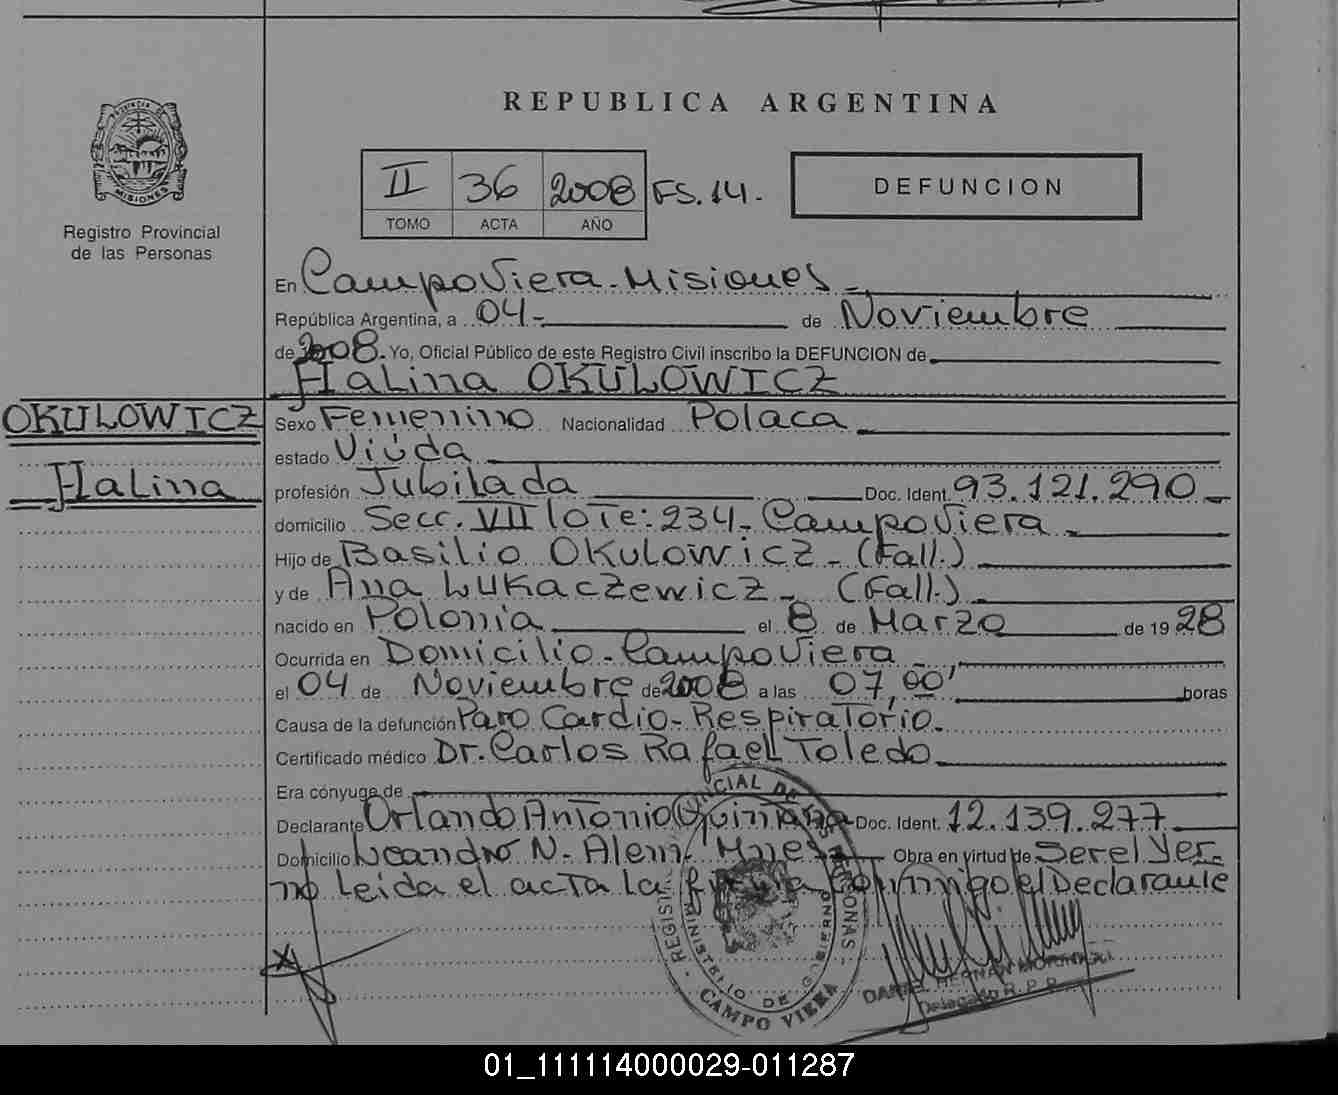 REPUBLICA ARGENTINA
PROVINCIA DE
MISIONES
Registro Provincial
de las Personas
II 36 2008 FS. 14.
TOMO ACTA AÑO
DEFUNCION
En Campo Viera - Misiones -
República Argentina, a 04 - de Noviembre
de 2008. Yo, Oficial Público de este Registro Civil inscribo la DEFUNCION de
Halina OKULOWICZ
OKULOWICZ
Halina
Sexo Femenino Nacionalidad Polaca
estado Viúda
profesión Jubilada Doc. Ident. 93.121.290 -
domicilio Secc. VII lote: 234 - Campo Viera -
Hijo de Basilio Okulowicz - (Fall.)
y de Ana Lukaczewicz - (Fall.) -
nacido en Polonia el 8 de Marzo de 19 28
Ocurrida en Domicilio - Campo Viera -
el 04 de Noviembre de 2008 a las 07,00' horas
Causa de la defunción Paro Cardio - Respiratorio.
Certificado médico Dr. Carlos Rafael Toledo
Era cónyuge de
Declarante Orlando Antonio Quintana Doc. Ident. 12.139.277
Domicilio Leandro N. Alem - Mnes - Obra en virtud de Ser el Yer-
no Leída el acta la firma conmigo el Declarante
MINISTERIO DE GOBIERNO
CAMPO VIERA
Delegado R. P. P.
01_111114000029-011287